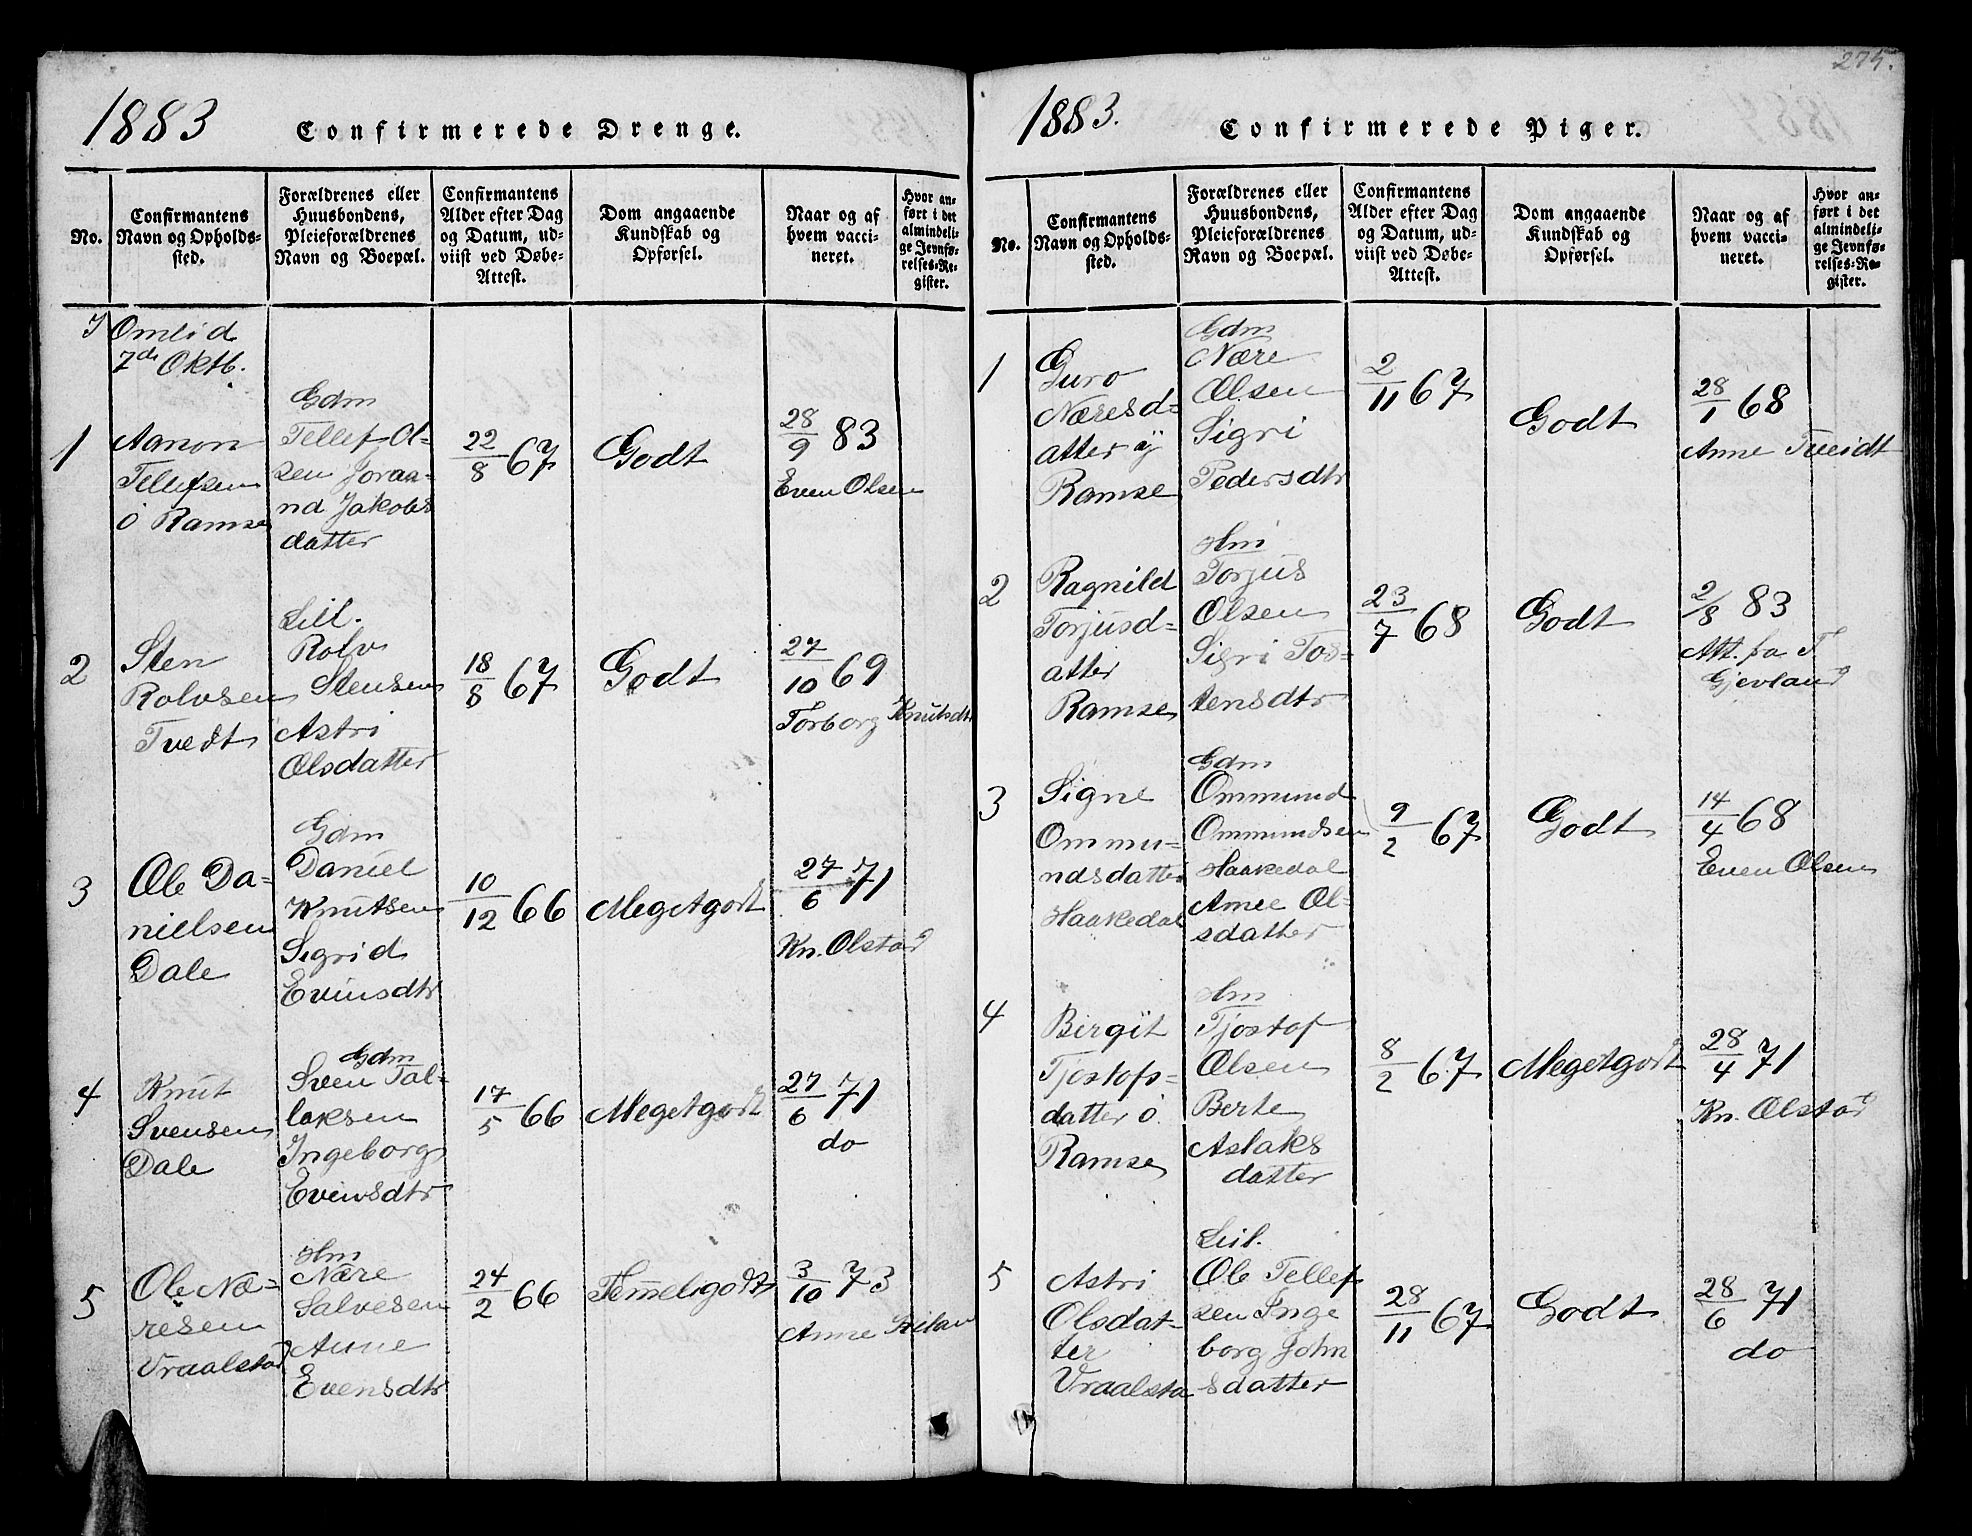 275.
1883
Confirmerede Drenge.
No.
Confirmantens
Navn og Opholds-
sted.
Forældrenes eller
Huusbondens,
Pleieforældrenes
Navn og Boepæl.
Confirmantens
Alder efter Dag
og Datum, ud-
viist ved Døbe-
Attest.
Dom angaaende
Kundskab og
Opførsel.
Naar og af
hvem vacci-
neret.
Hvor an-
ført i det
almindeli-
ge Jevnfø-
relses-Re-
gister.
I Omlid
7de Oktb.
1
Aanon
Tellefsen
ö Ramse
Gdm
Tellef Ol-
sen Joraa-
nd Jakobs
datter
22/8 67
Godt
28/9 83
Even Olsen
2
Sten
Rolvsen
Tvedt
Leil.
Rolv
Stensen
Astri
Olsdatter
18/8 67
Godt
27/10 69
Torborg Knutsdtr
3
Ole Da-
nielsen
Dale
Gdm
Daniel
Knutsen
Sigrid
Evensdtr
10/12 66
Megetgodt
27/6 71
Kn. Olstad
4
Knut
Svensen
Dale
Gdm
Sven Tal-
laksen
Ingeborg
Evensdtr
17/5 66
Megetgodt
27/6 71
do
5
Ole Næ-
resen
Vraalstad
Hm
Nære
Salvesen
Anne
Evensdtr
24/2 66
Temeligodt
3/10 73
Anne
1883.
Confirmerede Piger.
No.
Confirmantens
Navn og Opholds-
sted.
Forældrenes eller
Huusbondens,
Pleieforældrenes
Navn og Boepæl.
Confirmantens
Alder efter Dag
og Datum, ud-
viist ved Døbe-
Attest.
Dom angaaende
Kundskab og
Opførsel.
Naar og af
hvem vacci-
neret.
Hvor an-
ført i det
almindeli-
ge Jevnfø-
relses-Re-
gister.
1
Guro
Næresd-
atter y
Ramse
Gdm
Nære
Olsen
Sigri
Pedersdtr
2/11 67
Godt
28/1 68
Anne Tveidt
2
Ragnild
Torjusd-
atter
Ramse
Hm
Torjus
Olsen
Sigri Tos-
tensdtr
23/7 68
Godt
2/8 83
Att. fra T.
Gjevland
3
Signe
Ommu-
ndsdatter
Haakedal
Gdm
Ommund
Ommundsen
Haakedal
Amee Ol-
sdatter
9/2 67
Godt
14/4 68
Even Olsen
4
Birgit
Tjostofs-
datter ö.
Ramse
Hm
Tjostof
Olsen
Berte
Aslaks
datter
8/2 67
Megetgodt
28/4 71
Kn. Olstad
5
Astri
Olsdat-
ter
Vraalsta
Leil.
Ole Tellef
sen Inge
borg John
sdatter
28/11 67
Godt
28/6 71
do